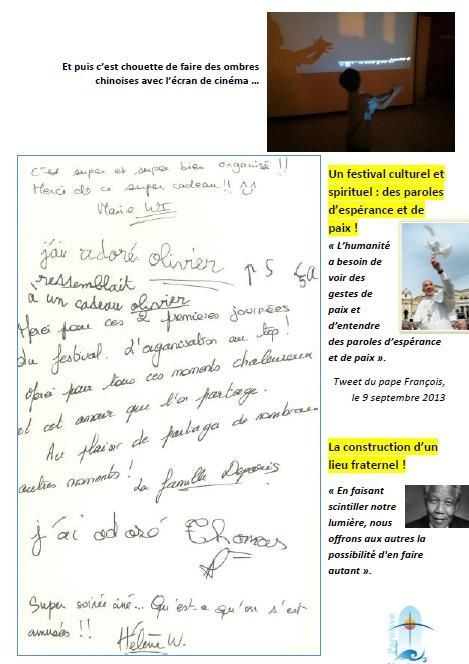 Et puis c'est chouette de faire des ombres
chinoises avec l'écran de cinéma …
C'est super et super bien organisé !!
Merci de ce super cadeau !! ^^
Marie WI
j'ai adoré olivier
ressemblait
a un cadeau olivier
Merci pour ces 2 premières journées
du festival. L'organisation au top !
Merci pour tous ces moments chaleureux
et cet amour que l'on partage.
Au plaisir de partager de nombreux
autres moments !
La famille
j'ai adoré Thomas
Super soirée ciné... Qu'est-ce qu'on s'est
amusés !!
Hélène W.
Un festival culturel et
spirituel : des paroles
d'espérance et de
paix !
« L'humanité
a besoin de
voir des
gestes de
paix et
d'entendre
des paroles d'espérance
et de paix ».
Tweet du pape François,
le 9 septembre 2013
La construction d'un
lieu fraternel !
« En faisant
scintiller notre
lumière, nous
offrons aux autres la
possibilité d'en faire
autant ».
Paroisse